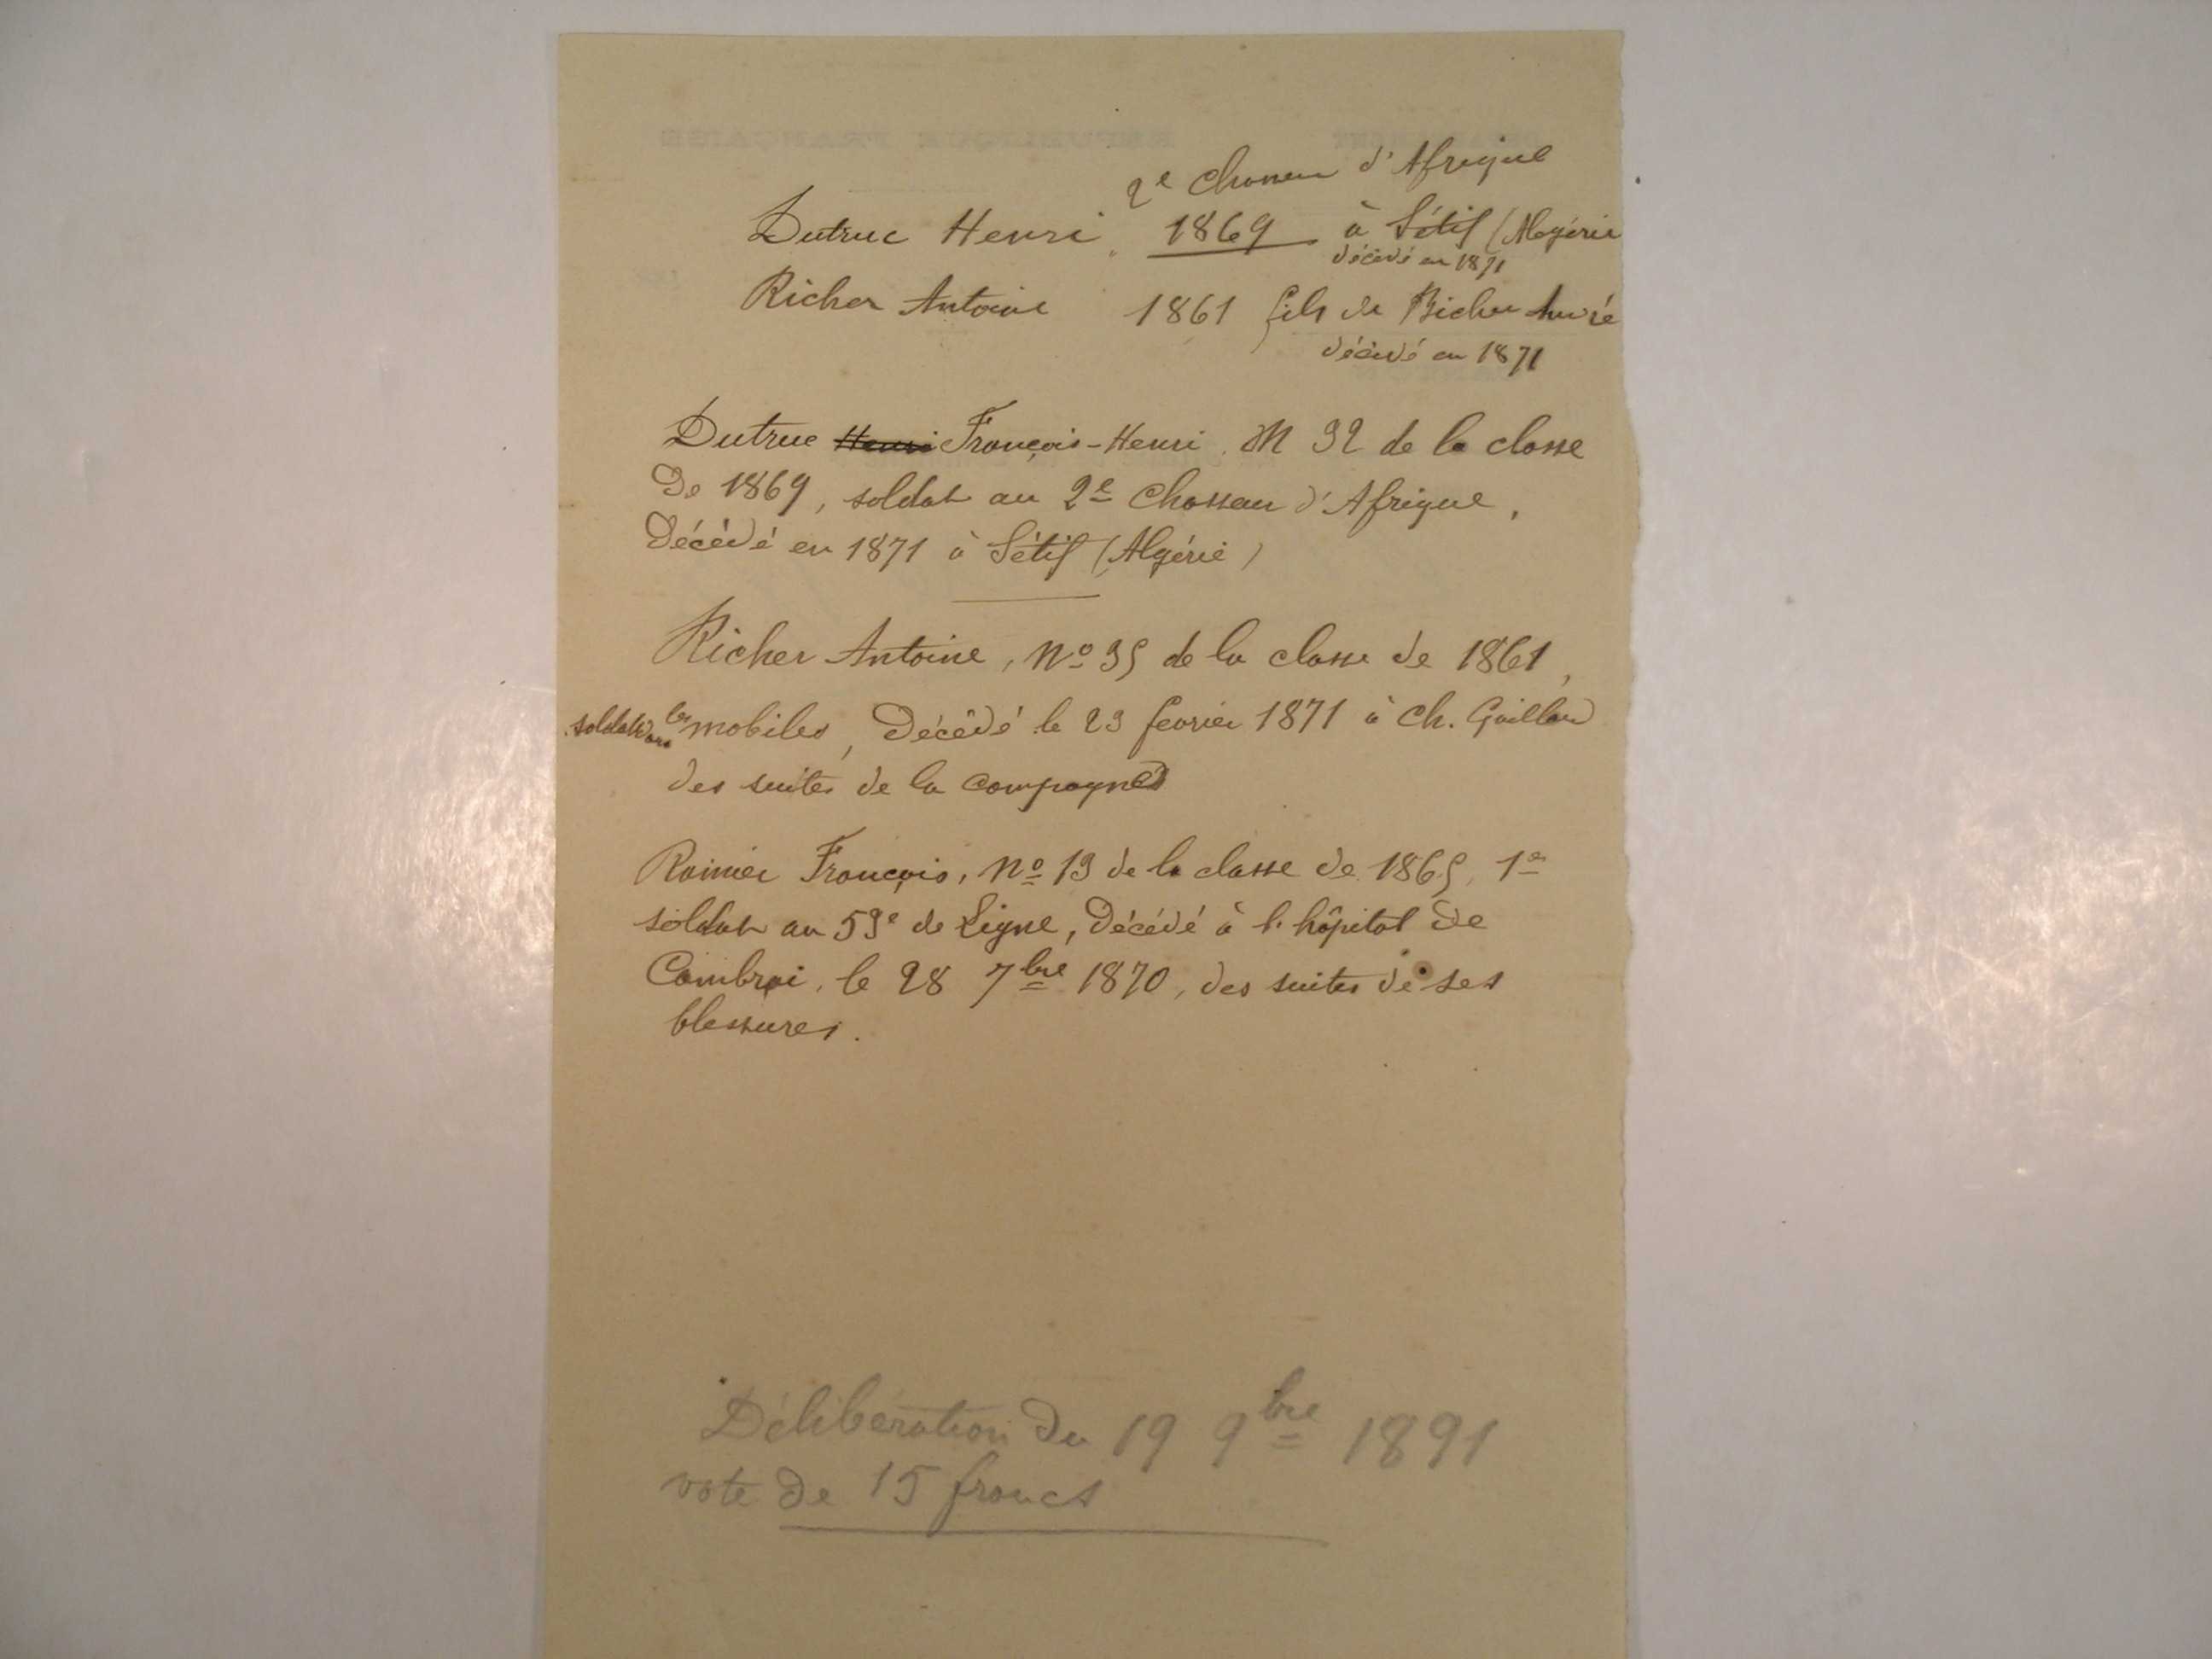 2e Chasseur d'Afrique
Dutruc Henri, 1869 à Sétif (Algérie
décédé en 1871
Richer Antoine 1861 fils de Richer
décédé en 1871
Dutruc Henri François-Henri, N 32 de la classe
de 1869, soldat au 2e Chasseur d'Afrique,
Décédé en 1871 à Sétif (Algérie)
Richer Antoine, No 35 de la classe de 1861,
soldat dans les mobiles, Décédé le 23 fevrier 1871 à Ch. Gaillard
des suites de la campagne
Rainier François, No 13 de la classe de 1865, 1er
soldat au 53e de Ligne, Décédé à l'hôpital de
Cambrai, le 28 7bre 1870, des suites de ses
blessures.
Délibération du 19 9bre 1891
vote de 15 francs